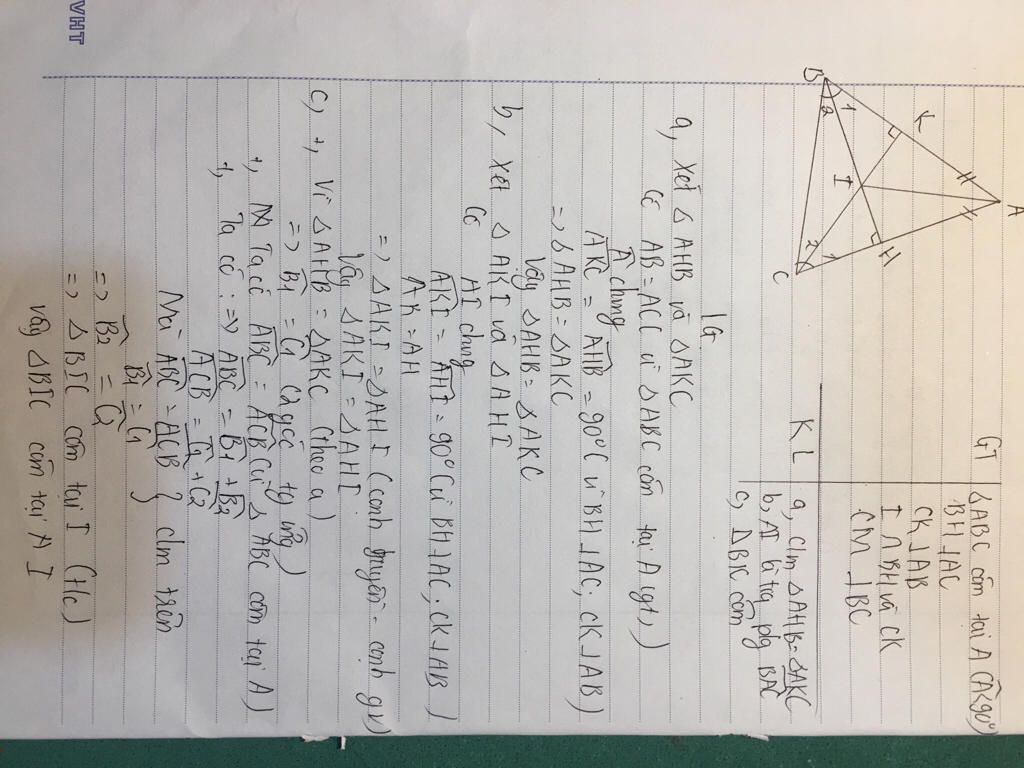 VHT
A
B
C
K
H
I
1
2
2
1
GT
ΔABC cân tại A (Â<90°)
BH⊥AC
CK⊥AB
I ∩ BH và CK
CM ⊥ BC
KL
a, c/m ΔAHB = ΔAKC
b, AI là tia p/g BAC
c, ΔBIC cân
LG
a, Xét ΔAHB và ΔAKC
Có AB = AC (vì ΔABC cân tại A (gt))
Â chung
AKC = AHB = 90° (vì BH⊥AC; CK⊥AB)
=> ΔAHB = ΔAKC
Vậy ΔAHB = ΔAKC
b, Xét ΔAKI và ΔAHI
Có AI chung
AKI = AHI = 90° (vì BH⊥AC; CK⊥AB)
AK = AH
=> ΔAKI = ΔAHI (cạnh huyền - cạnh gv)
Vậy ΔAKI = ΔAHI
c, +, Vì ΔAHB = ΔAKC (theo a)
=> B1 = C1 (2 góc tg ứng)
+, Ta có ABC = ACB (vì ΔABC cân tại A)
+, Ta có: => ABC = B1 + B2
ACB = C1 + C2
Mà ABC = ACB } c/m trên
B1 = C1
=> B2 = C2
=> ΔBIC cân tại I (t/c)
vậy ΔBIC cân tại I